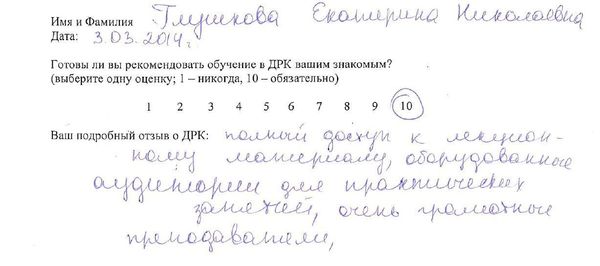 Имя и Фамилия Глушкова Екатерина Николаевна
Дата: 3.03.2014г.
Готовы ли вы рекомендовать обучение в ДРК вашим знакомым?
(выберите одну оценку; 1 – никогда, 10 – обязательно)
1 2 3 4 5 6 7 8 9 10
Ваш подробный отзыв о ДРК: полный доступ к лекцион-
ному материалу, оборудованные
аудитории для практических
занятий, очень грамотные
преподаватели,